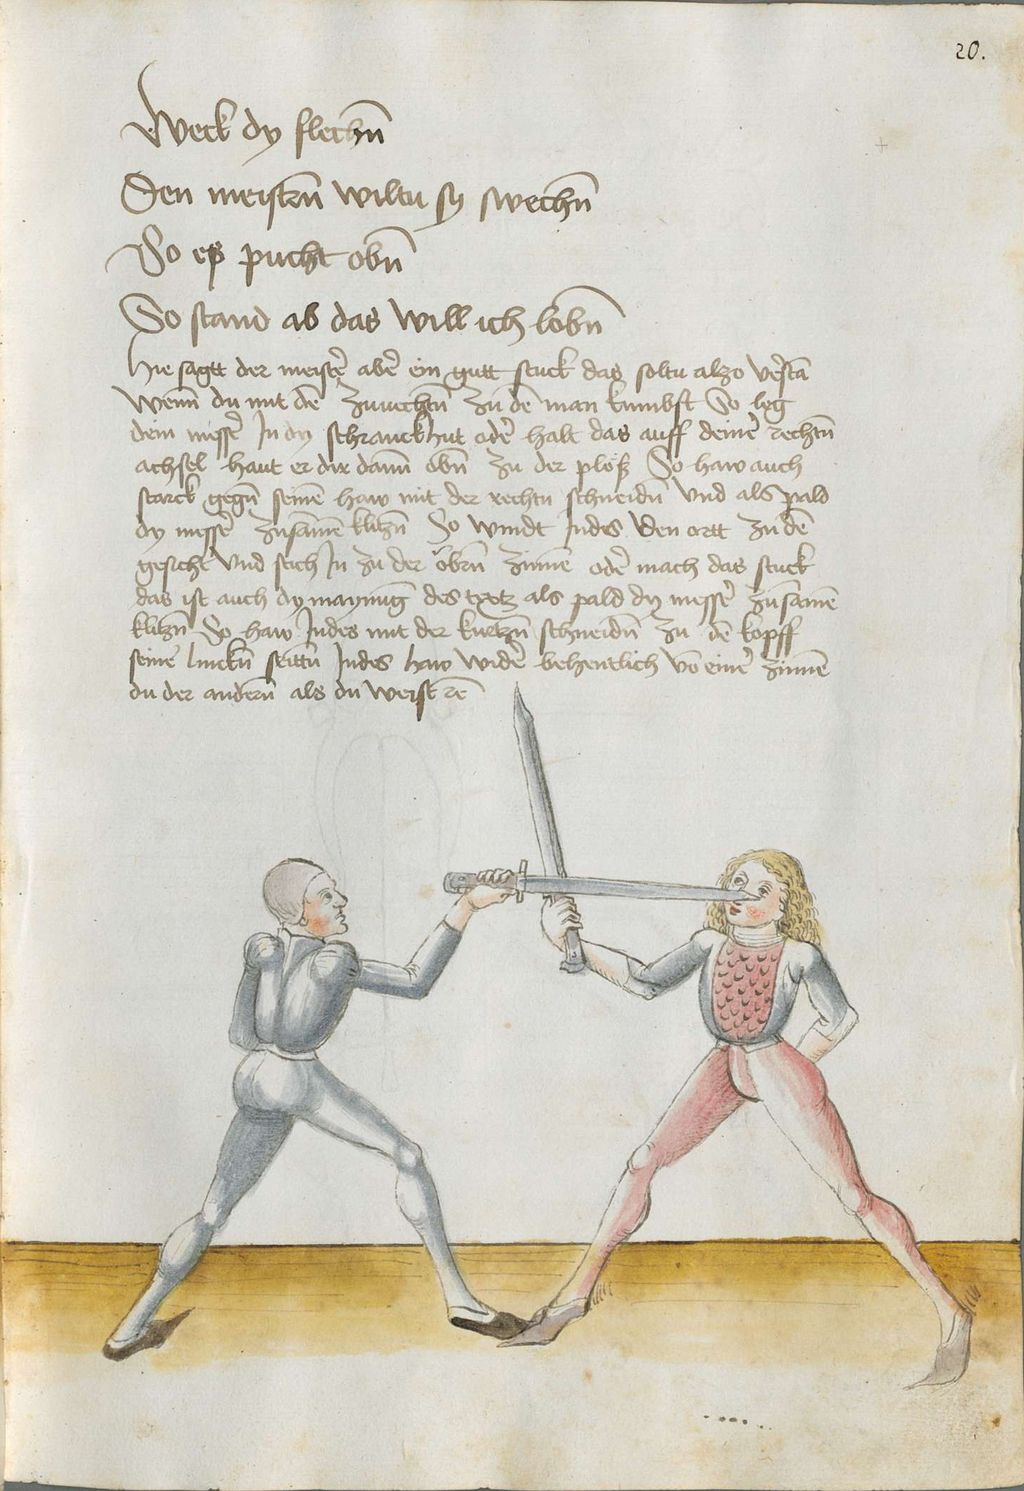 20.
Weck dy flechn̄
Den meistrn̄ wiltu sy swechn̄
So es pucht obn̄
So stand ab das will ich lobn̄
Hie sagtt der meist̄ abē ein gutt stuck das soltu alzo v̄estā
Wenn du mit dē zuvechtn̄ zu dē man kumbst So leg
dein messē In dy schranckhut odē halt das auff deinē rechtn̄
achsel haut er dir dann obn̄ zu der plöß So haw auch
starck gegn̄ seinē haw mit der rechtn schneidn̄ vnd als pald
dy messē zusāmē klitzn̄ So windt Indes den ortt zu dē
gesicht vnd stich In zu der öbrn̄ zinnē odē mach das stuck
das ist auch dy maynūg des textz als pald dy messē zusāmē
klitzn̄ So haw Indes mit der kurtzn̄ schneidn̄ zu dē kopff
seinē linckn̄ seittn̄ Indes haw widē behentlich vō einē zinnē
du der andern̄ als du weist rē